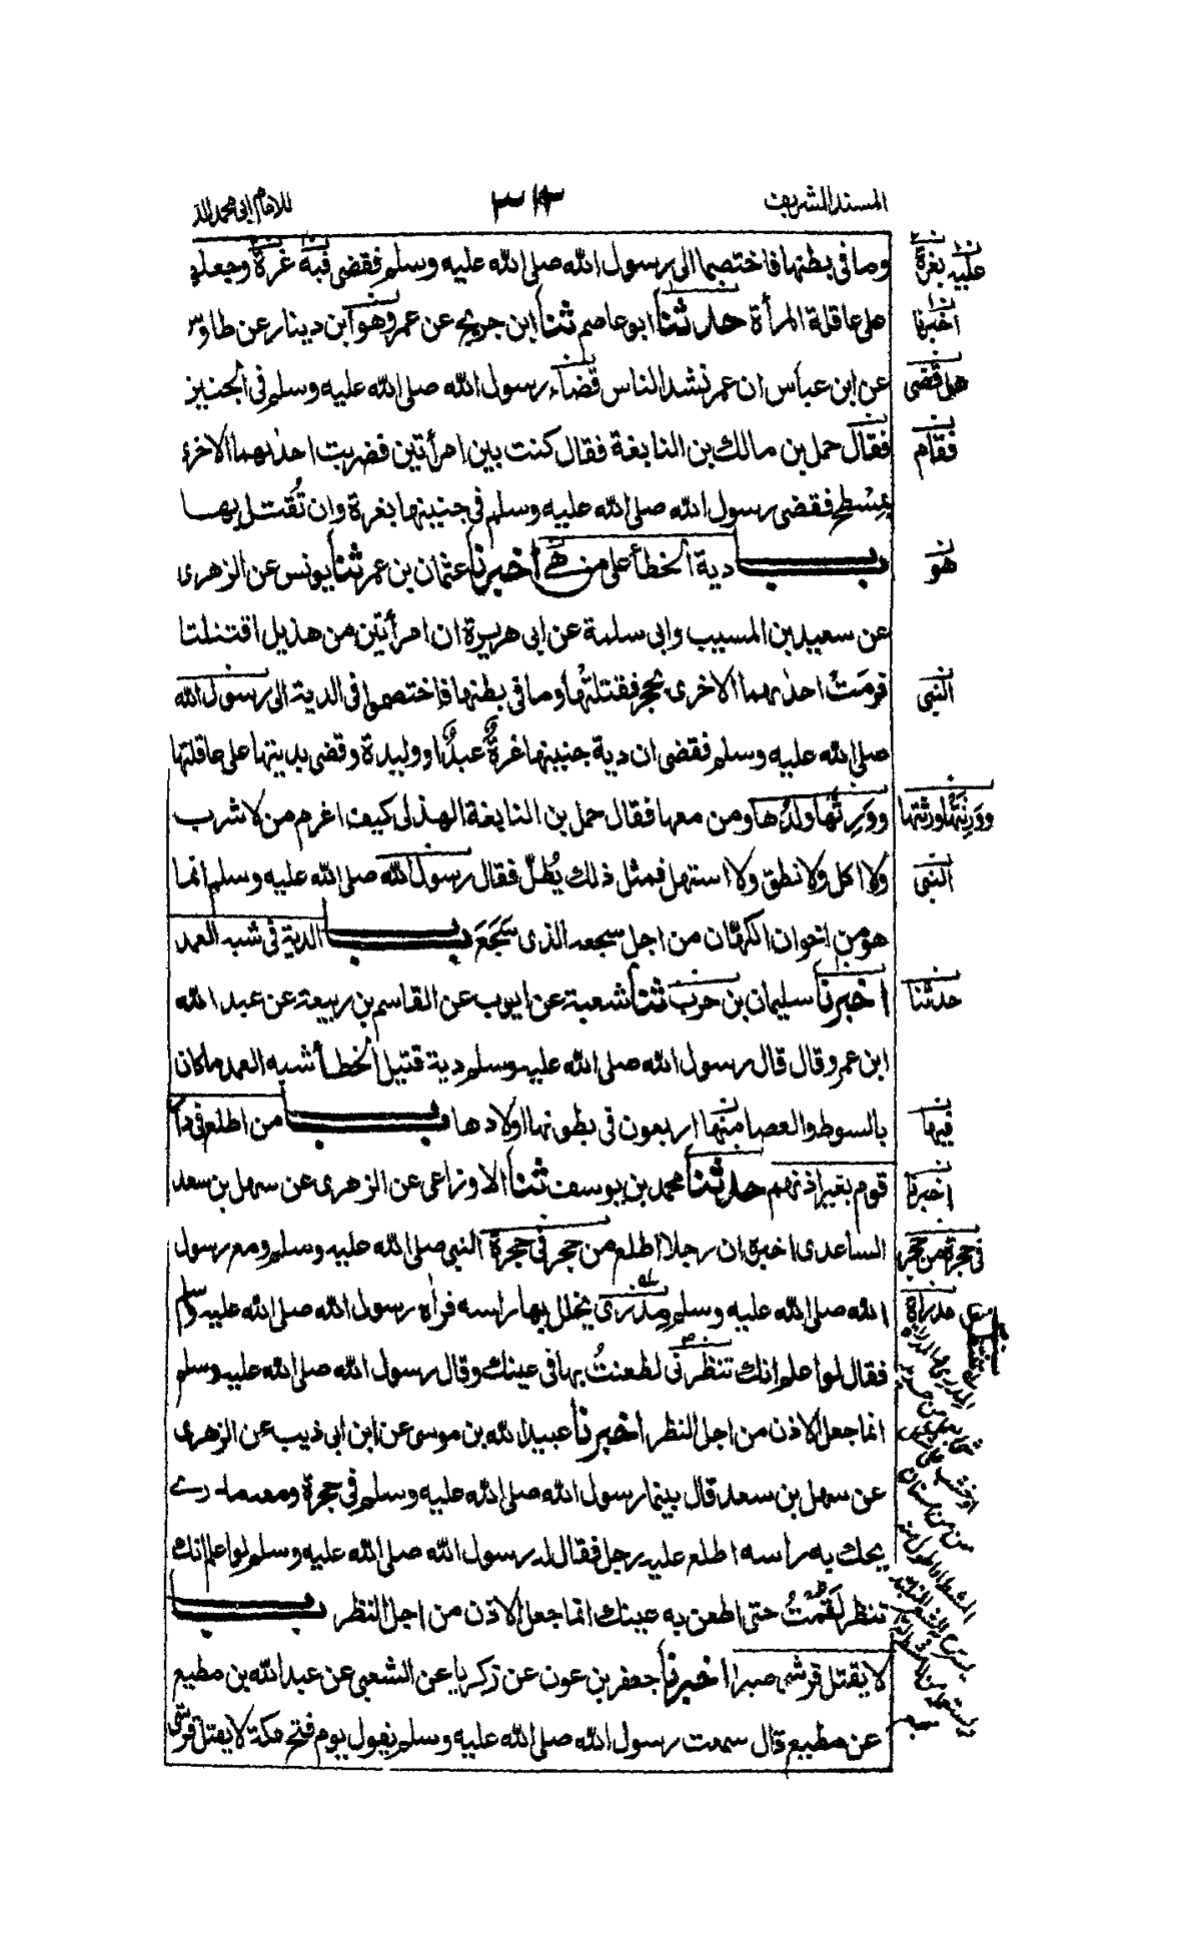 المسند الشريف
٣١٣
للامام ابى محمد الد
وما فى بطنها فاختصما الى رسول الله صلى الله عليه وسلم فقضى فيه غرة وجعلها
على عاقلة المرأة حدثنا ابو عاصم ثنا ابن جريج عن عمرو هو ابن دينار عن طاوس
عن ابن عباس ان عمر نشد الناس قضاء رسول الله صلى الله عليه وسلم فى الجنين
فقال حمل بن مالك بن النابغة فقال كنت بين امرأتين فضربت احدٰىهما الاخرى
بمسطح فقضى رسول الله صلى الله عليه وسلم فى جنينها بغرة وان تُقتل بها
باب دية الخطأ على من هى اخبرنا عثمان بن عمر ثنا يونس عن الزهرى
عن سعيد بن المسيب وابى سلمة عن ابى هريرة ان امرأتين من هذيل اقتتلتا
فرمَتْ احدٰىهما الاخرى بحجر فقتلتها وما فى بطنها فاختصموا فى الدية الى رسول الله
صلى الله عليه وسلم فقضى ان دية جنينها غرةٌ عبدٌ او وليدة وقضى بديتها على عاقلتها
ووَرِثَها ولدُها ومن معها فقال حمل بن النابغة الهذلى كيف اغرم من لا شرب
ولا اكل ولا نطق ولا استهل فمثل ذلك يُطلّ فقال رسول الله صلى الله عليه وسلم انما
هو من اخوان الكهان من اجل سجعه الذى سَجَعَ باب الدية فى شبه العمد
اخبرنا سليمان بن حرب ثنا شعبة عن ايوب عن القاسم بن ربيعة عن عبد الله
ابن عمرو قال قال رسول الله صلى الله عليه وسلم دية قتيل الخطأ شبه العمد ما كان
بالسوط والعصا منها اربعون فى بطونها اولادها باب من اطلع فى دار
قوم بغير اذنهم حدثنا محمد بن يوسف ثنا الاوزاعى عن الزهرى عن سهل بن سعد
الساعدى اخبره ان رجلا اطلع من جحر فى حجرة النبى صلى الله عليه وسلم ومع رسول
الله صلى الله عليه وسلم مِدْرًى يخلل بها راسه فراٰه رسول الله صلى الله عليه وسلم
فقال لو اعلم انك تنظرنى لطعنتُ بها فى عينك وقال رسول الله صلى الله عليه وسلم
انما جعل الاذن من اجل النظر اخبرنا عبيد الله بن موسى عن ابن ابى ذيب عن الزهرى
عن سهل بن سعد قال بينما رسول الله صلى الله عليه وسلم فى حجرة ومعه مدرى
يحك به راسه اطلع عليه رجل فقال له رسول الله صلى الله عليه وسلم لو اعلم انك
تنظر لقمتُ حتى اطعن به عينك انما جعل الاذن من اجل النظر باب
لا يقتل قرشى صبرا اخبرنا جعفر بن عون عن زكريا عن الشعبى عن عبد الله بن مطيع
عن مطيع قال سمعت رسول الله صلى الله عليه وسلم يقول يوم فتح مكة لا يقتل قرشى
عليه بغرة
اخبرنا
هل قضى
فقام
هو
النبى
ووَرِثَتْها ورثتها
النبى
حدثنا
فيها
اخبرنا
فى حجرة من جحر
مدراة